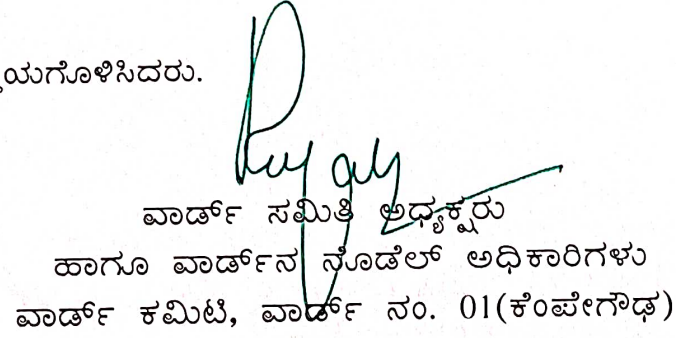 ಯಗೊಳಿಸಿದರು.
ವಾರ್ಡ್ ಸಮಿತಿ ಅಧ್ಯಕ್ಷರು
ಹಾಗೂ ವಾರ್ಡ್‌ನ ನೊಡೆಲ್ ಅಧಿಕಾರಿಗಳು
ವಾರ್ಡ್ ಕಮಿಟಿ, ವಾರ್ಡ್ ನಂ. 01(ಕೆಂಪೇಗೌಢ)